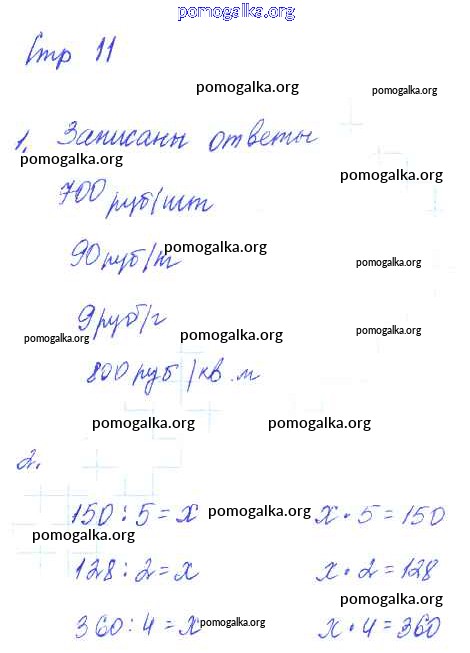 pomogalka.org
Стр 11
pomogalka.org pomogalka.org
1. Записаны ответы
pomogalka.org pomogalka.org
700 руб/шт
pomogalka.org
90 руб/т
pomogalka.org
9 руб/г
pomogalka.org pomogalka.org pomogalka.org
800 руб/кв.м
pomogalka.org pomogalka.org
2.
150 : 5 = x x · 5 = 150
pomogalka.org
pomogalka.org
128 : 2 = x x · 2 = 128
pomogalka.org
360 : 4 = x x · 4 = 360
pomogalka.org